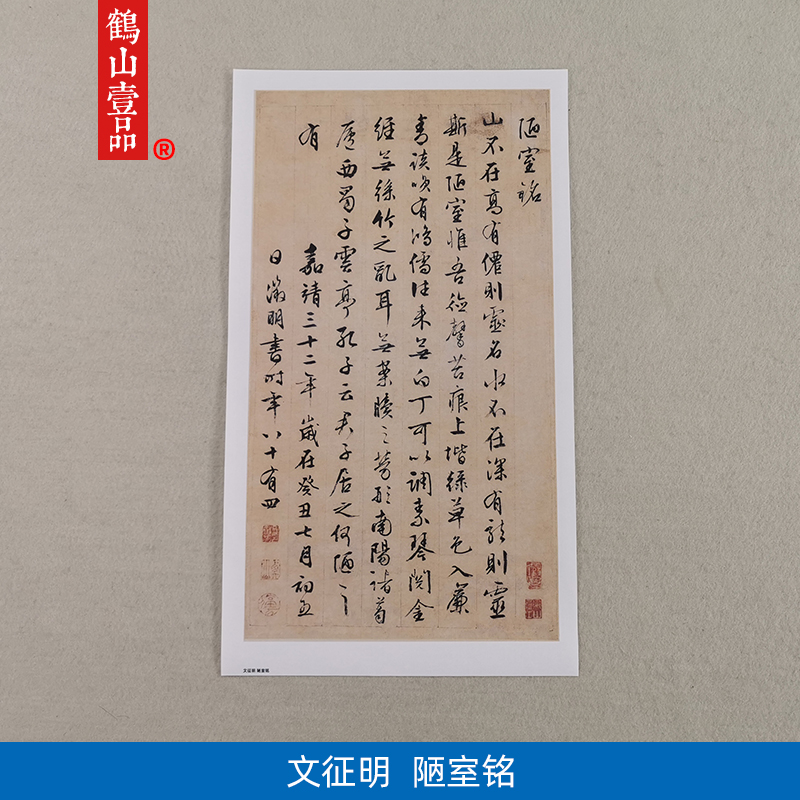 鶴山壹品
®
陋室銘
山不在高有僊則靈名水不在深有龍則靈
斯是陋室惟吾德馨苔痕上堦綠草色入簾
青談咲有鴻儒往來無白丁可以調素琴閱金
經無絲竹之亂耳無案牘之勞形南陽諸葛
廬西蜀子雲亭孔子云君子居之何陋之
有 嘉靖三十二年歲在癸丑七月初五
日徵明書時年八十有四
文征明 陋室铭
文征明 陋室铭